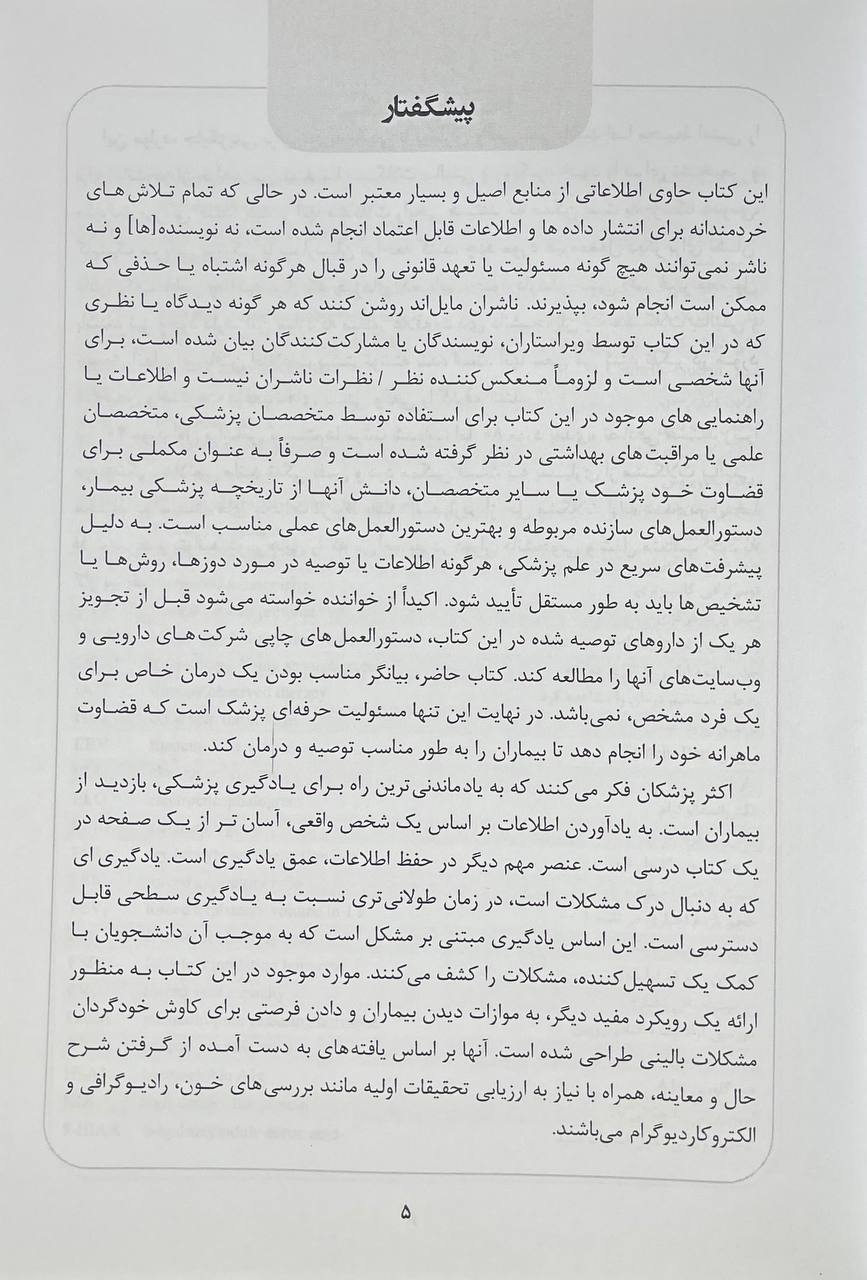 پیشگفتار
این کتاب حاوی اطلاعاتی از منابع اصیل و بسیار معتبر است. در حالی که تمام تلاش‌های
خردمندانه برای انتشار داده ها و اطلاعات قابل اعتماد انجام شده است، نه نویسنده[ها] و نه
ناشر نمی‌توانند هیچ گونه مسئولیت یا تعهد قانونی را در قبال هرگونه اشتباه یا حذفی که
ممکن است انجام شود، بپذیرند. ناشران مایل‌اند روشن کنند که هر گونه دیدگاه یا نظری
که در این کتاب توسط ویراستاران، نویسندگان یا مشارکت‌کنندگان بیان شده است، برای
آنها شخصی است و لزوماً منعکس‌کننده نظر / نظرات ناشران نیست و اطلاعات یا
راهنمایی های موجود در این کتاب برای استفاده توسط متخصصان پزشکی، متخصصان
علمی یا مراقبت‌های بهداشتی در نظر گرفته شده است و صرفاً به عنوان مکملی برای
قضاوت خود پزشک یا سایر متخصصان، دانش آنها از تاریخچه پزشکی بیمار،
دستورالعمل‌های سازنده مربوطه و بهترین دستورالعمل‌های عملی مناسب است. به دلیل
پیشرفت‌های سریع در علم پزشکی، هرگونه اطلاعات یا توصیه در مورد دوزها، روش‌ها یا
تشخیص‌ها باید به طور مستقل تأیید شود. اکیداً از خواننده خواسته می‌شود قبل از تجویز
هر یک از داروهای توصیه شده در این کتاب، دستورالعمل‌های چاپی شرکت‌های دارویی و
وب‌سایت‌های آنها را مطالعه کند. کتاب حاضر، بیانگر مناسب بودن یک درمان خاص برای
یک فرد مشخص، نمی‌باشد. در نهایت این تنها مسئولیت حرفه‌ای پزشک است که قضاوت
ماهرانه خود را انجام دهد تا بیماران را به طور مناسب توصیه و درمان کند.
اکثر پزشکان فکر می‌کنند که به یادماندنی‌ترین راه برای یادگیری پزشکی، بازدید از
بیماران است. به یادآوردن اطلاعات بر اساس یک شخص واقعی، آسان تر از یک صفحه در
یک کتاب درسی است. عنصر مهم دیگر در حفظ اطلاعات، عمق یادگیری است. یادگیری ای
که به دنبال درک مشکلات است، در زمان طولانی‌تری نسبت به یادگیری سطحی قابل
دسترسی است. این اساس یادگیری مبتنی بر مشکل است که به موجب آن دانشجویان با
کمک یک تسهیل‌کننده، مشکلات را کشف می‌کنند. موارد موجود در این کتاب به منظور
ارائه یک رویکرد مفید دیگر، به موازات دیدن بیماران و دادن فرصتی برای کاوش خودگردان
مشکلات بالینی طراحی شده است. آنها بر اساس یافته‌های به دست آمده از گرفتن شرح
حال و معاینه، همراه با نیاز به ارزیابی تحقیقات اولیه مانند بررسی‌های خون، رادیوگرافی و
الکتروکاردیوگرام می‌باشند.
۵